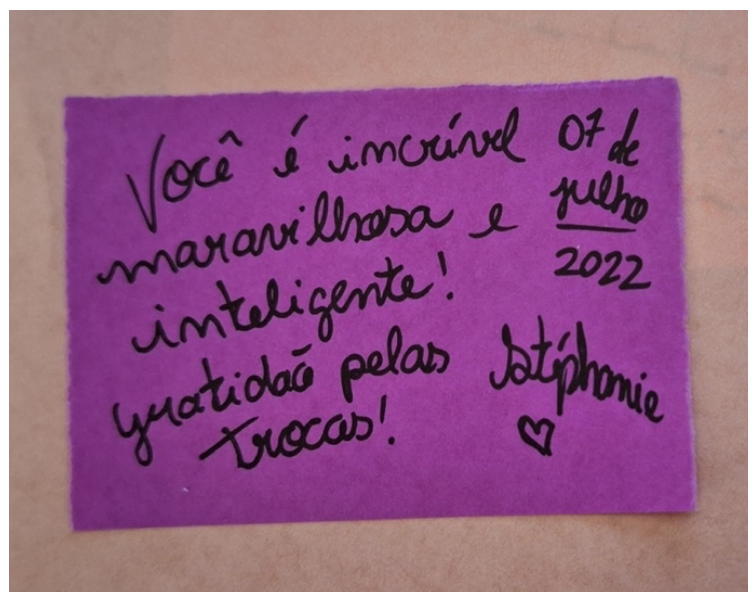 Você é incrível
maravilhosa e
inteligente!
gratidão pelas
trocas!
07 de
julho
2022
Stéphanie